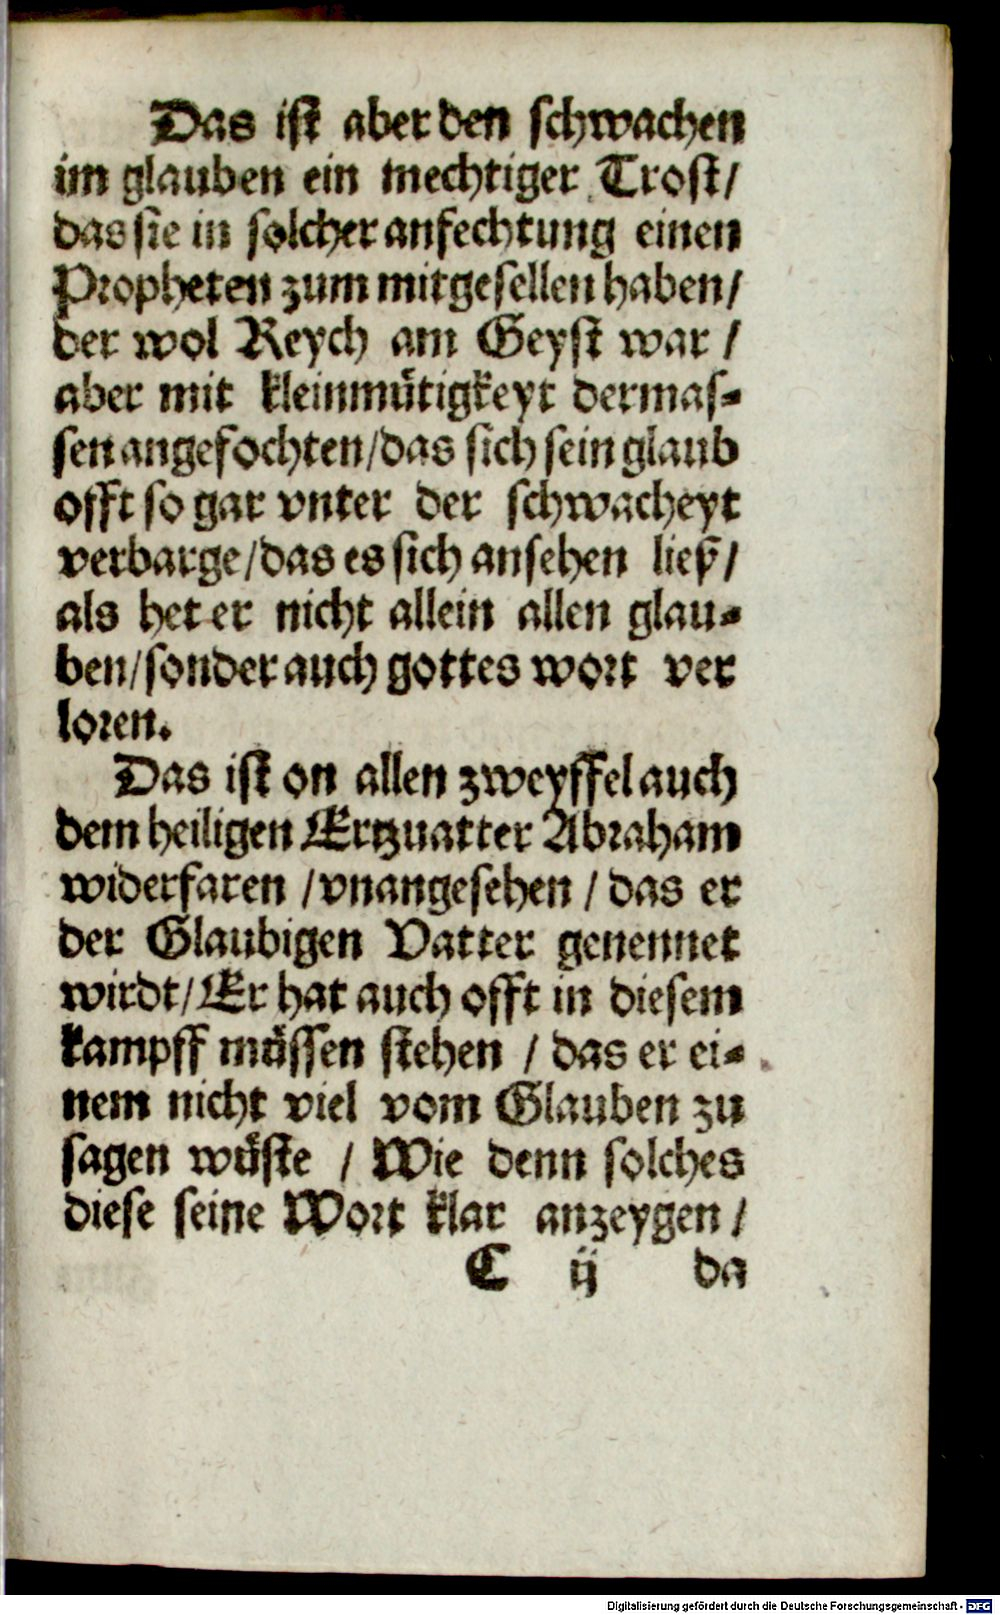 Das ist aber den schwachen
im glauben ein mechtiger Trost/
das sie in solcher anfechtung einen
Propheten zum mitgesellen haben/
der wol Reych am Geyst war /
aber mit kleinmuͤtigkeyt dermas-
sen angefochten/das sich sein glaub
offt so gar vnter der schwacheyt
verbarge/das es sich ansehen ließ/
als het er nicht allein allen glau-
ben/sonder auch gottes wort ver
loren.
Das ist on allen zweyffel auch
dem heiligen Ertzuatter Abraham
widerfaren /vnangesehen / das er
der Glaubigen Vatter genennet
wirdt/Er hat auch offt in diesem
kampff muͤssen stehen / das er ei-
nem nicht viel vom Glauben zu
sagen wuͤste / Wie denn solches
diese seine Wort klar anzeygen /
C ij da
Digitalisierung gefördert durch die Deutsche Forschungsgemeinschaft - DFG